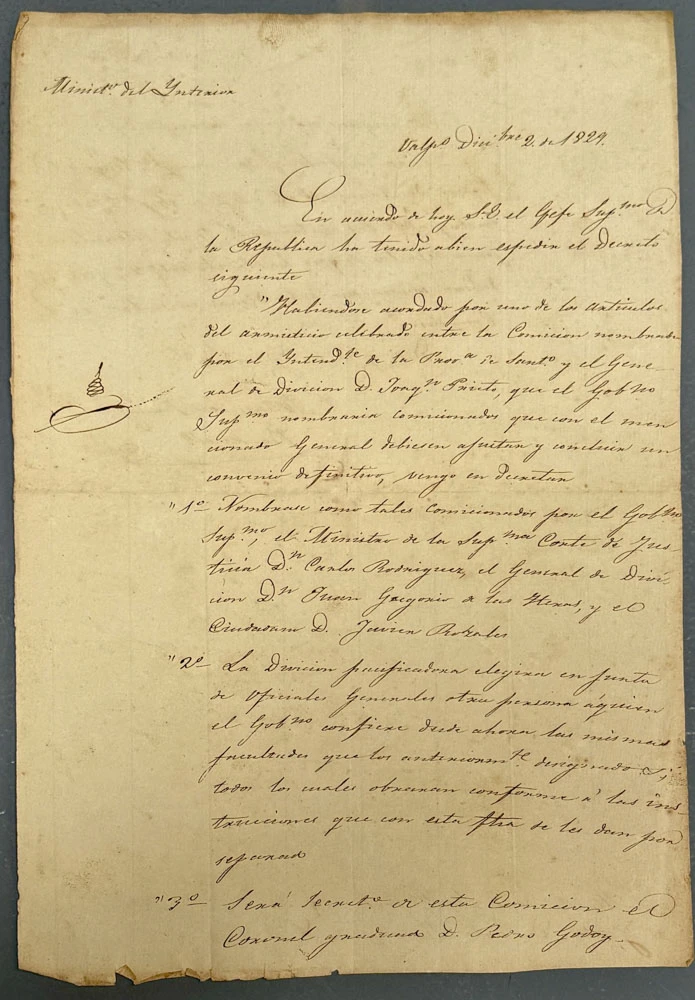 Minist.º del Ynterior
Valp.º Dici.bre 2. de 1829.
En acuerdo de hoy S.E. el Gefe Sup.mo de
la Republica ha tenido abien espedir el Decreto
siguiente
"Habiendose acordado por uno de los articulos
del armisticio celebrado entre la Comicion nombrada
por el Yntend.te de la Prov.a de Sant.º y el Gene-
ral de Division D. Joaq.n Prieto, que el Gob.no
Sup.mo nombraria comicionados que con el men
cionado General debiesen ajustar y concluir un
convenio definitivo, vengo en decretar
"1º Nombrase como tales comicionados por el Gob.no
Sup.mo, el Ministro de la Sup.ma Corte de Jus-
ticia D.n Carlos Rodriguez, el General de Divi-
cion D.n Juan Gregorio de las Heras, y el
Ciudadano D. Javier Rosales
"2º La Division pacificadora elegira en junta
de Oficiales Generales otra persona áquien
el Gob.no confiere desde ahora las mismas
facultades que los anteriorm.te designados
todos los cuales obraran conforme á las ins-
trucciones que con esta fha se les dan por
separado
"3º Será Secret.º de esta Comicion el
Coronel graduado D. Pedro Godoy